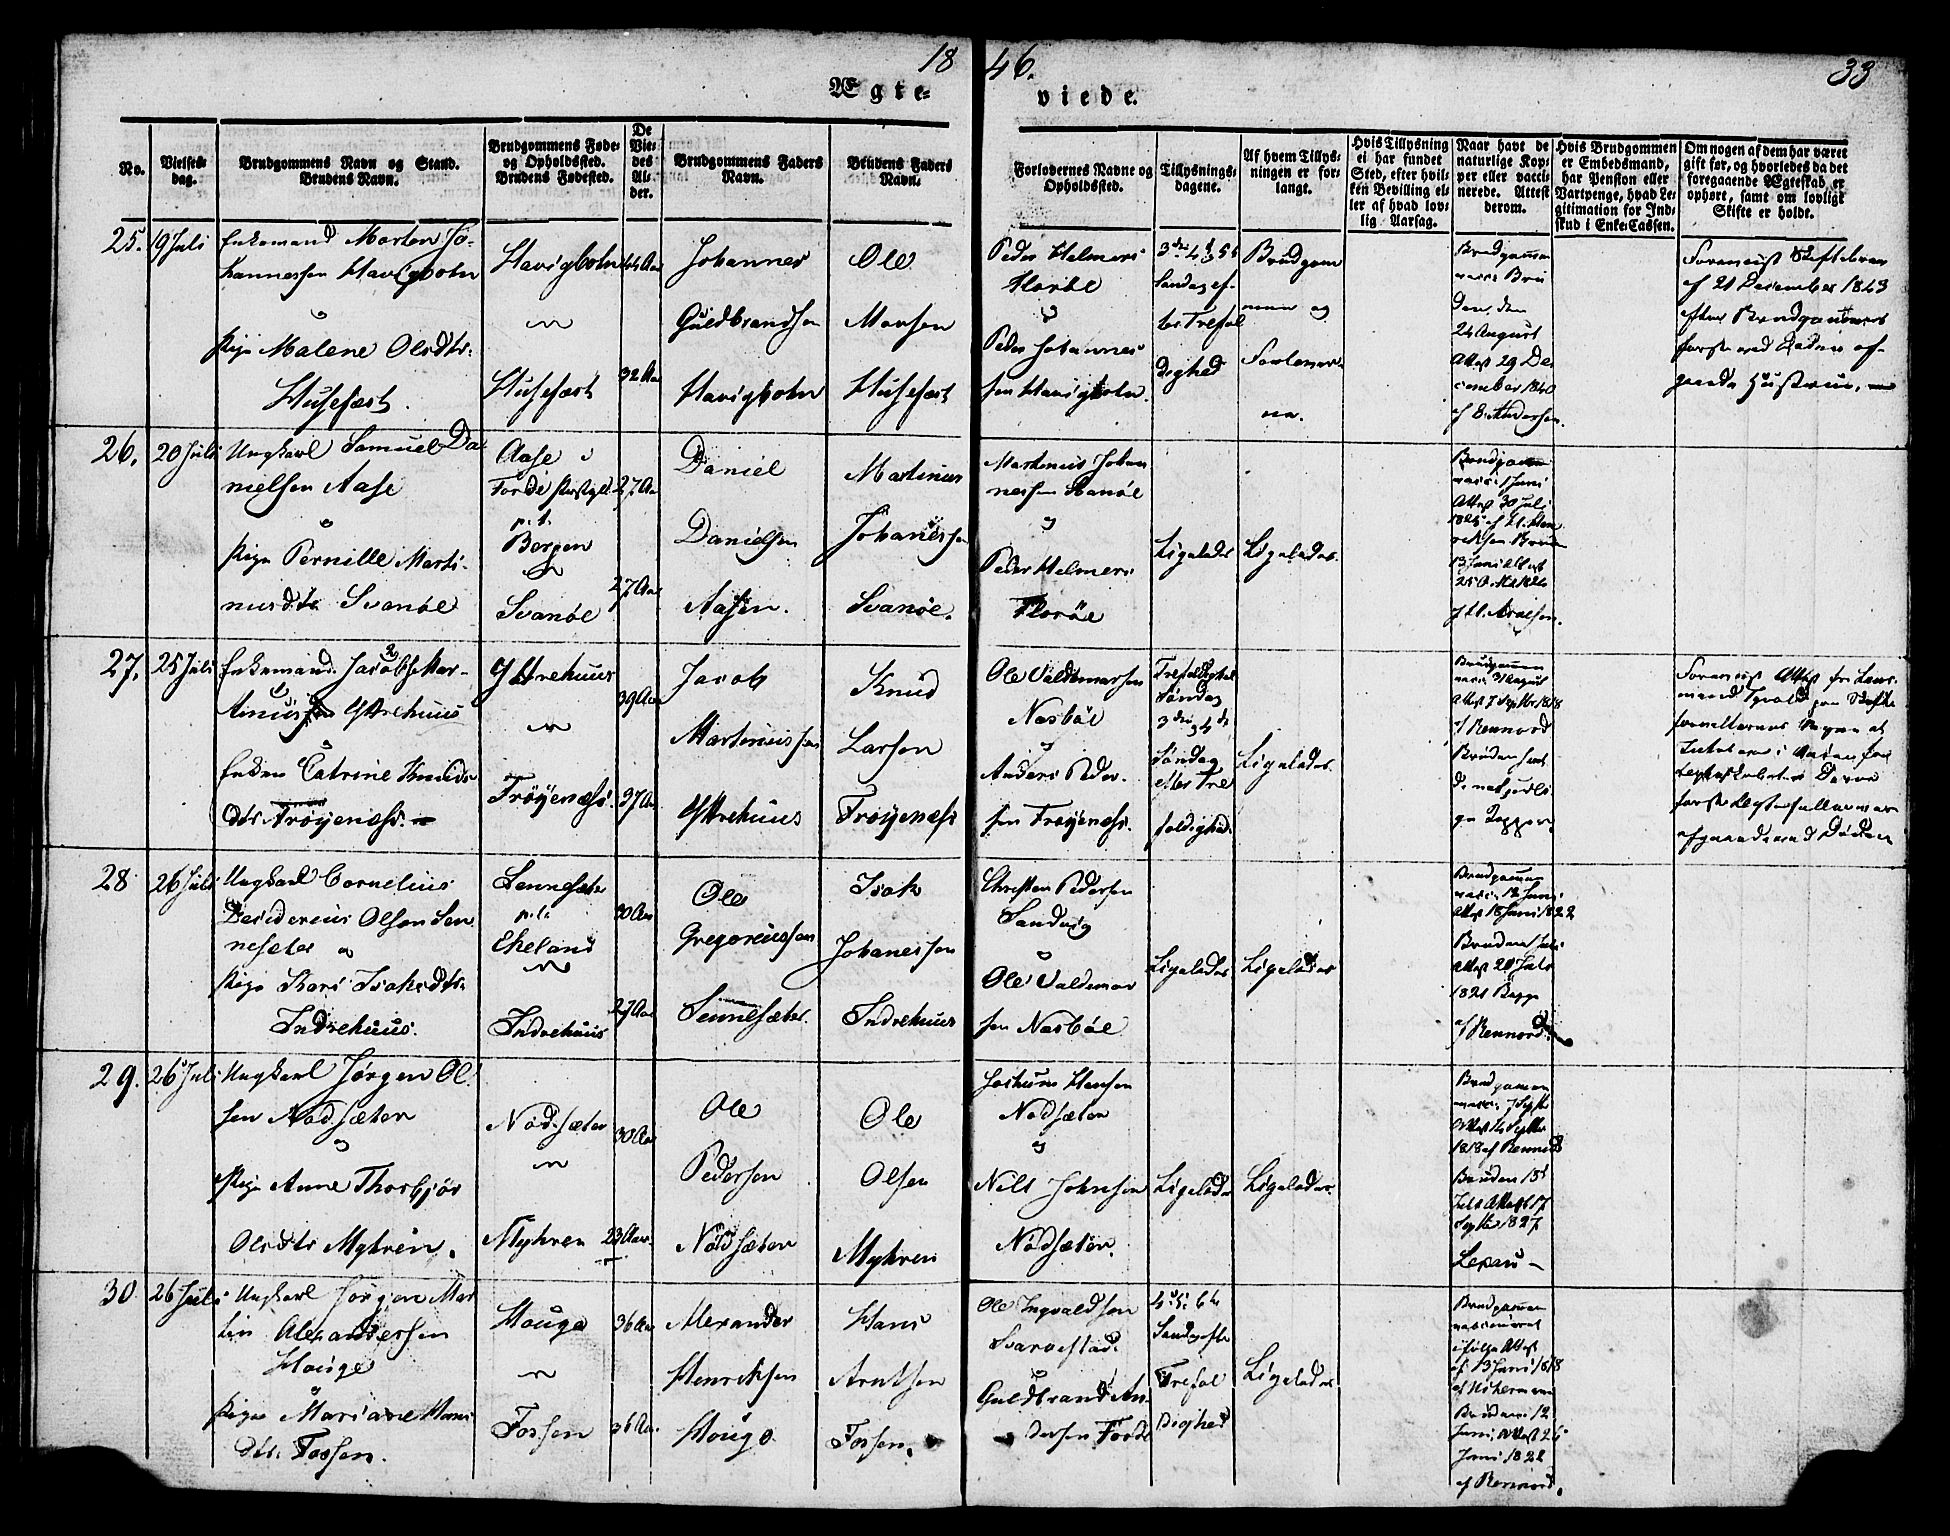 18 46. 33
Ægte- viede.
No.
Vielses-
dag.
Brudgommens Navn og Stand.
Brudens Navn.
Brudgommens Føde-
og Opholdssted.
Brudens Fødested.
De
Vie-
des
Al-
der.
Brudgommens Faders
Navn.
Brudens Faders
Navn.
Forlovernes Navne og
Opholdssted.
Tillysnings-
dagene.
Af hvem Tillys-
ningen er for-
langt.
Hvis Tillysning
ei har fundet
Sted, efter hvil-
ken Bevilling el-
ler af hvad lov-
lig Aarsag.
Naar havt de
naturlige Kop-
per eller vacci-
nerede. Attest
derom.
Hvis Brudgommen
er Embedsmand,
har Pension eller
Vartpenge, hvad Le-
gitimation for Ind-
skud i Enke-Cassen.
Om nogen af dem har været
gift før, og hvorledes da det
foregaaende Ægteskab er
ophørt, samt om lovligt
Skifte er holdt.
25. 19 Juli
Enkemand Morten Jo-
hannessen Havigbotn
og
Pige Malene Olsdtr.
Husefæst.
Havigbotn
Husefæst
44 Aar
32 Aar
Johannes
Guldbrandsen
Havigbotn
Ole
Monsen
Husefæst
Peder Helmers
Florøe
og
Peder Johannes
sen Havigbotn.
3die 4de 5te
Søndag ef-
ter Trefol
dighed
Brudgom
men og
Forlover-
ne.
Brudgommen
vacc: Bru
den den
24 August
Attest 29 De
cember 1840
af E. Andersen.
Foreviist Skiftebrev
af 21 December 1843
efter Brudgommens
forste ved Døden af-
gangne Hustrue.
26. 20 Juli
Ungkarl Samuel Da-
nielsen Aase
og
Pige Pernille Marti-
nusdtr Svanøe
Aase i
Førde Præstgld
p.t.
Bergen
Svanøe
27 Aar
27 Aar
Daniel
Danielsen
Aasen.
Martinus
Johanessen
Svanøe.
Martinus Johan
nessen Svanøe
og
Peder Helmers
Florøe
Ligeledes
Ligeledes.
Brudgommen
vacc: 1 Juni
Attest 30 Juli
27. 25 Juli
Enkemand Jacob Mar-
tinussen Yttrehuus
og
Enken Catrine Knuds
dtr Trøyenæss.
Yttrehuus
Trøyenæss.
39 Aar
37 Aar
Jacob
Martinussen
Yttrehuus
Knud
Larsen
Trøyenæss
Ole Valdemarsen
Nasbøe
og
Anders Peder-
sen Trøyenæss.
Trefoldighed
Søndag
3die og 4de
Søndag
efter Tre
foldighed.
Ligeledes.
Brudgommen
vacc: 31 August
Attest 7 Septbr 1818
af Rennord
Bruden havt
de naturli
ge Kopper.
Foreviist Attest fra Lens
28 26 Juli
Ungkarl Cornelius
Desiderius Olsen Sen
nesæter og
Pige Kari Isaksdtr.
Indrehuus.
Sennesæter
p.t.
Ekeland
Indrehuus
30 Aar
27 Aar
Ole
Gregoriussen
Sennesæter.
Isak
Johanessen
Indrehuus
Christen Pedersen
Sandvig
og
Ole Valdemar
sen Nasbøe
Ligeledes
Ligeledes
Brudgommen
vacc: 13 Juni
Attest 18 Juni 1822
Bruden Juli
Attest 20 Juli
1821
af Rennord.
29. 26 Juli
Ungkarl Jørgen Ol-
sen Nødsæter
og
Pige Anne Thorbjør
Olsdtr Myhren.
Nødsæter
Myhren
30 Aar
23 Aar.
Ole
Pedersen
Nødsæter
Ole
Olsen
Myhren
Jochum Hansen
Nødsæter
og
Nils Johnsen
Nødsæter.
Ligeledes
Ligeledes.
Brudgommen
vacc: 7 Septbr
Attest 14 Septbr
1818 af Rennord
Bruden 13
Juli Attest 17
Septbr 1827
30 26 Juli
Ungkarl Jørgen Mar
tin Alexandersen
Houge
og
Pige Mariane Hans
dtr. Fossen.
Houge
Fossen
36 Aar
36 Aar.
Alexander
Henriksen
Houge
Hans
Arntsen
Fossen.
Ole Ingvaldsen
Svarvestad.
og
Guldbrand An-
dersen Førde
4. 5. 6te
Søndag efter
Trefol
dighed
Ligeledes.
Brudgommen
vaccineret
ifølge Attest
af 13 Juni 1818
Bruden 12
Juni, Attest 26
Juni 1822
af Rennord.